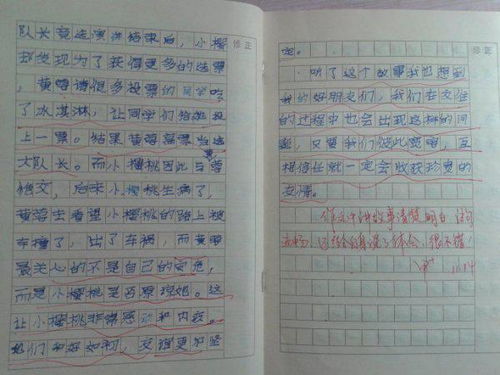 队长竞选演讲结束后，小樱
桃发现为了获得更多的选票
，黄蓉请很多投票的同学吃
了冰淇淋，让同学们给她投
上一票。结果黄蓉高票当选
大队长。而小樱桃因此与黄蓉
绝交，后来小樱桃生病了，
黄蓉去看望小樱桃的路上被
车撞了，出了车祸，而黄蓉
最关心的不是自己的安危，
而是小樱桃是否原谅她。这
让小樱桃非常感动和内疚。
她们和好如初，友谊更加坚
修正
固。
听了这个故事我也想到
我的好朋友们，我们在交往
的过程中也会出现这样的问
题，只要我们彼此宽容，互
相信任就一定会收获珍贵的
友情。
作文中讲故事清楚明白
流畅，很不错！
修正